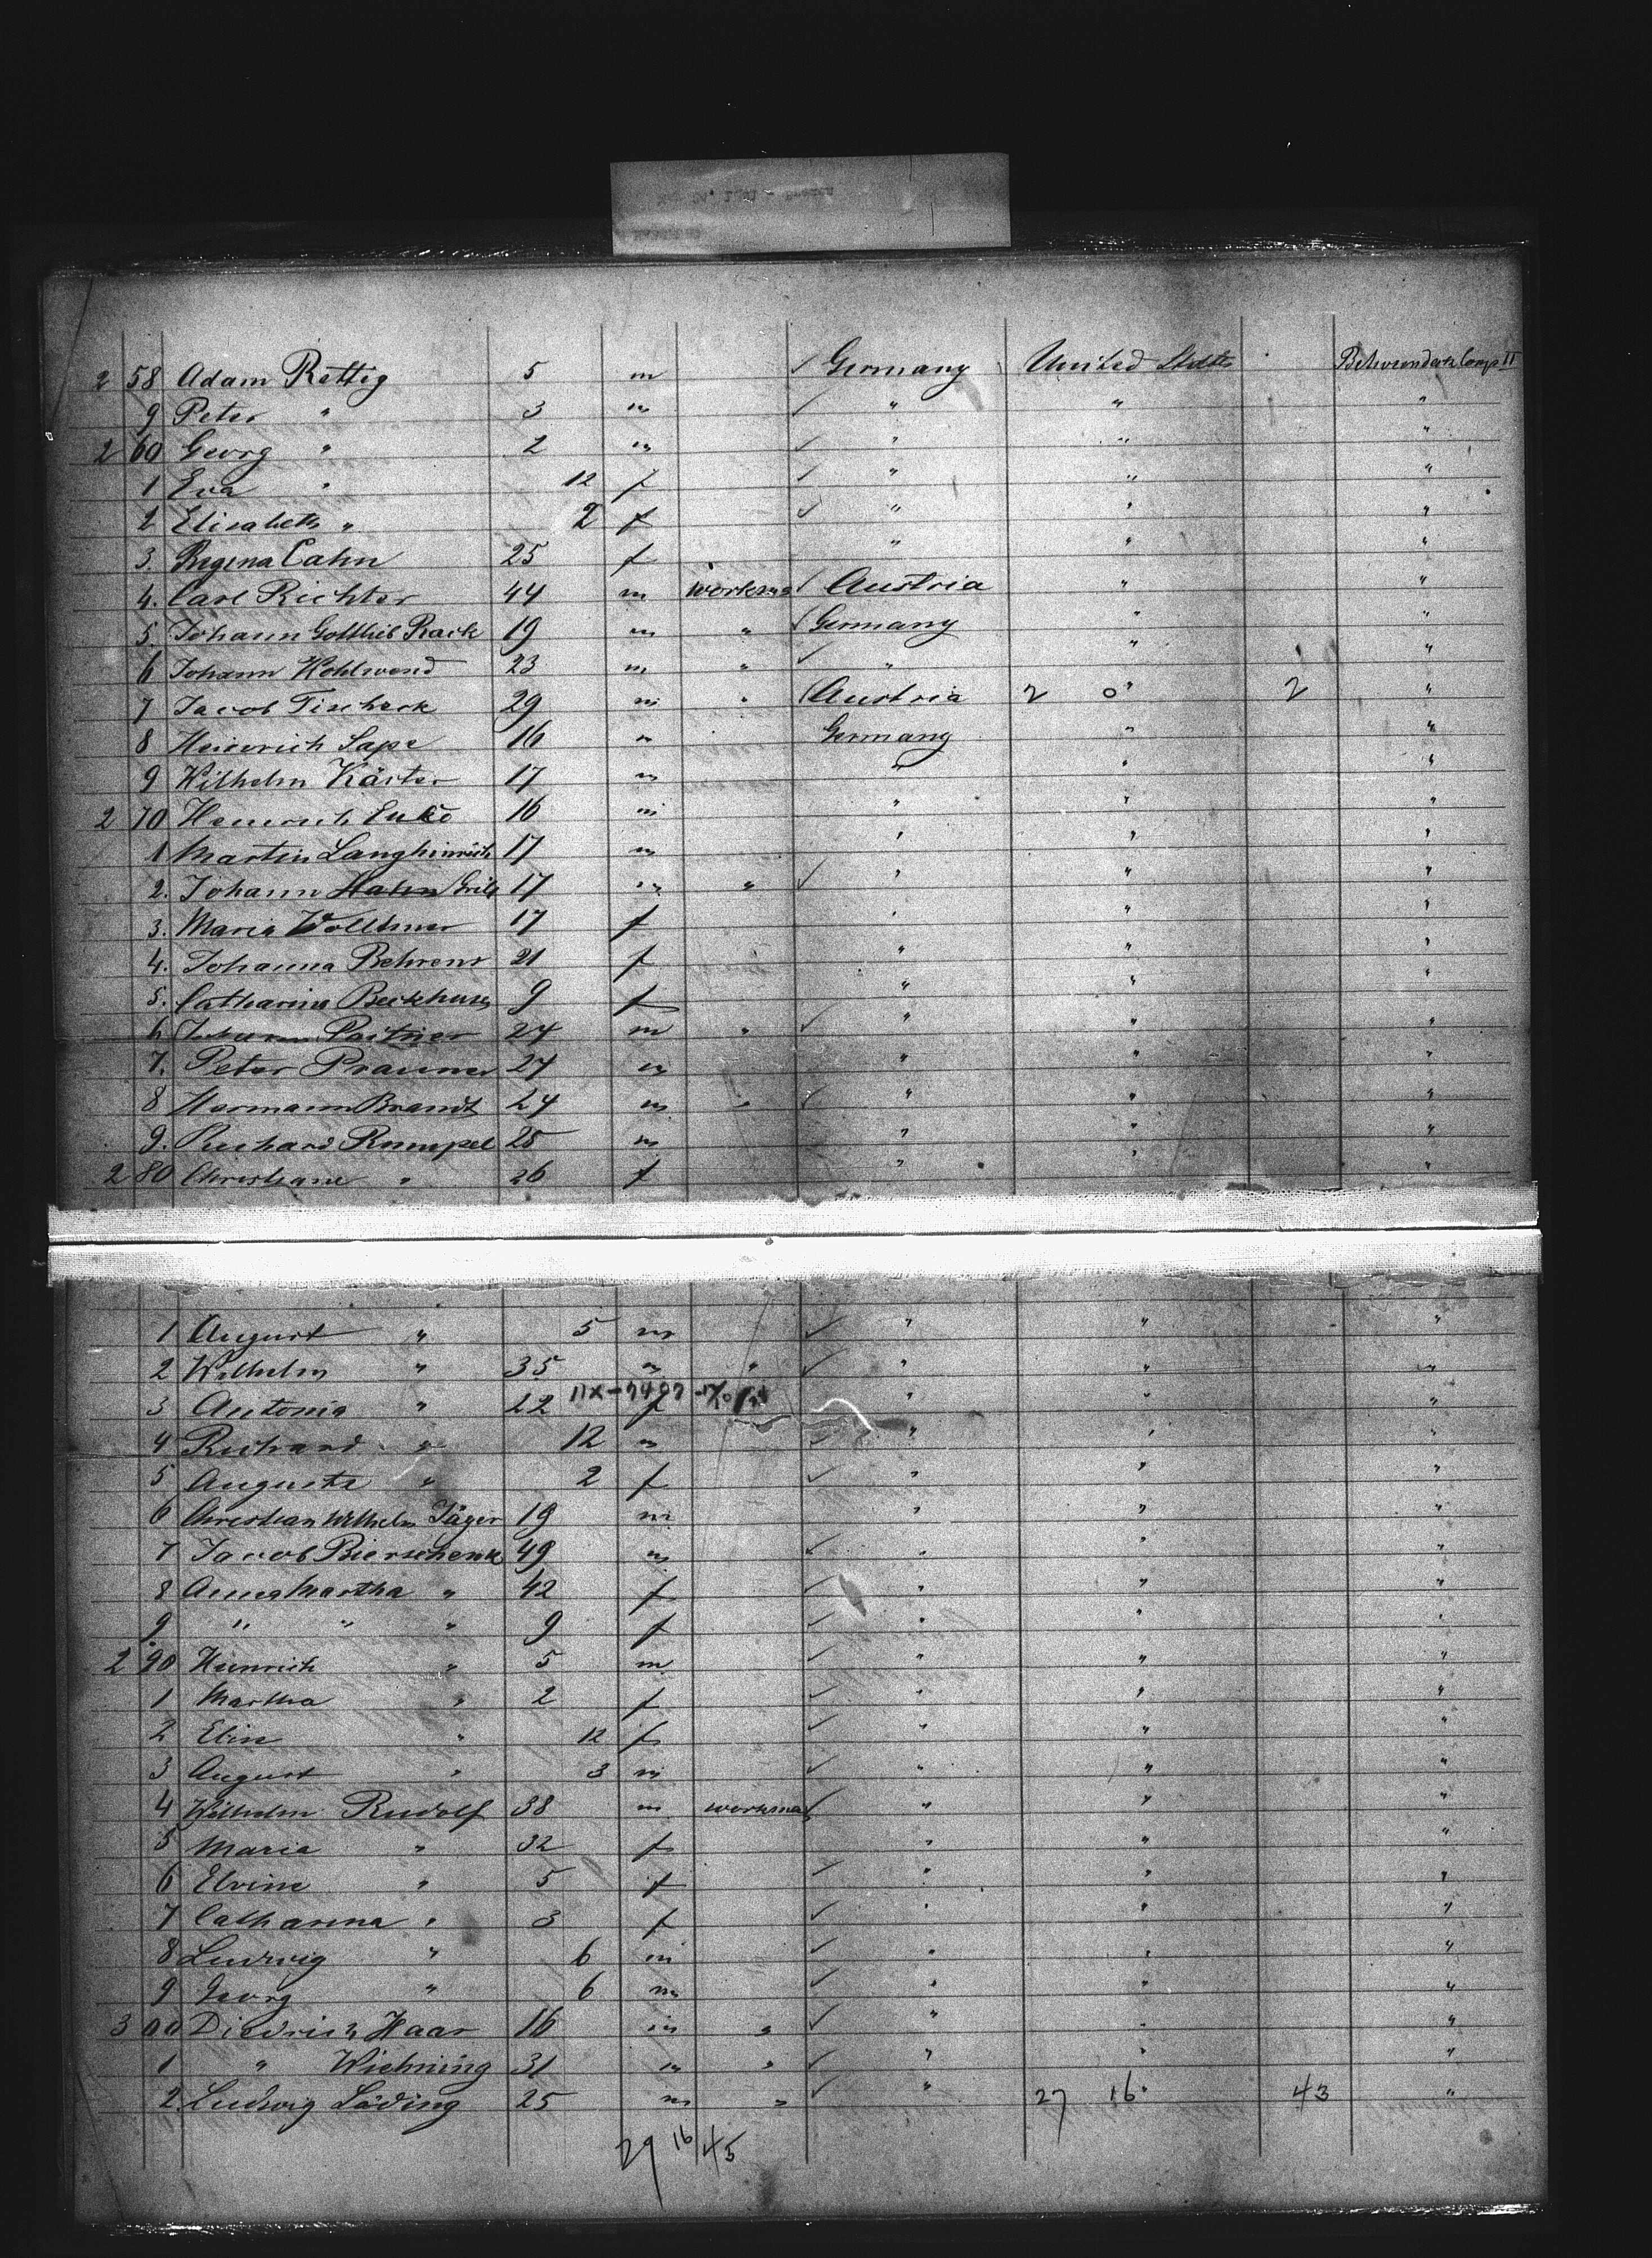 2 58 Adam Rettig 5 m ✓ Germany United States Betweendeck Comp II
9 Peter " 3 m ✓ " " "
2 60 Georg " 2 m ✓ " " "
1 Eva " 12 f ✓ " " "
2 Elisabeth " 2 f ✓ " " "
3. Regina Cahn 25 f " " "
4. Carl Richter 44 m workma Austria " "
5 Johann Gottlieb Rack 19 m " Germany " "
6 Johann Wohlwend 23 m " ✓ " " "
7 Jacob Tischeck 29 m " Austria 2 0 " 2 "
8 Heinrich Sape 16 m Germany " "
9 Wilhelm Käster 17 m " " "
2 70 Heinrich 16 m " " "
1 Martin Langhinrich 17 m " " "
2. Johann 17 m " ✓ " " "
3. Maria Vollmer 17 f " " "
4. Johanna Behrens 21 f " " "
5. Catharina Beckhusen 9 f " " "
6 Johann 24 m " ✓ " " "
7. Peter Prauner 27 m " " "
8 Hermann Brandt 24 m " ✓ " " "
9. Richard Rumpel 25 m " " "
2 80 Christiane " 26 f " " "
1 August " 5 m ✓ " " "
2 Wilhelm " 35 m " ✓ " " "
3 Antonia " 22 f " " "
4 Richard " 12 m ✓ " " "
5 Auguste " 2 f ✓ " " "
6 Christian Wilhelm Jäger 19 m " " "
7 Jacob Bierschenk 49 m ✓ " " "
8 Anna Martha " 42 f ✓ " " "
9 " " " 9 f ✓ " " "
2 90 Heinrich " 5 m ✓ " " "
1 Martha " 2 f ✓ " " "
2 Elise " 12 f ✓ " " "
3 August " 3 m ✓ " " "
4 Wilhelm Rudolf 38 m workma ✓ " " "
5 Maria " 32 f " " "
6 Elvine " 5 f ✓ " " "
7 Catharina " 3 f ✓ " " "
8 Ludwig " 6 m ✓ " " "
9 Georg " 6 m ✓ " " "
3 00 Diedrich Haar 16 m " ✓ " " "
1 " Wichning 31 m " ✓ " " "
2. Ludwig Löding 25 m " ✓ " 27 16 " 43 "
29 16 45